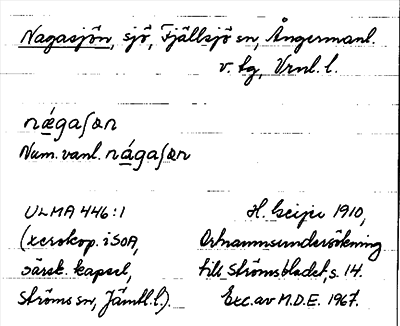 Nagasjön, sjö, Fjällsjö sn, Ångermanl.
v. tg, Vrnl. l.
nǽgaſɷn
Num. vanl. nágaſɷn
ULMA 446:1
(xerokop. i SOA,
särsk. kapsel,
Ströms sn, Jämtl. l.).
H. Geijer 1910,
Ortnamnsundersökning
till Strömsbladet, s. 14.
Exc. av M.D.E. 1967.